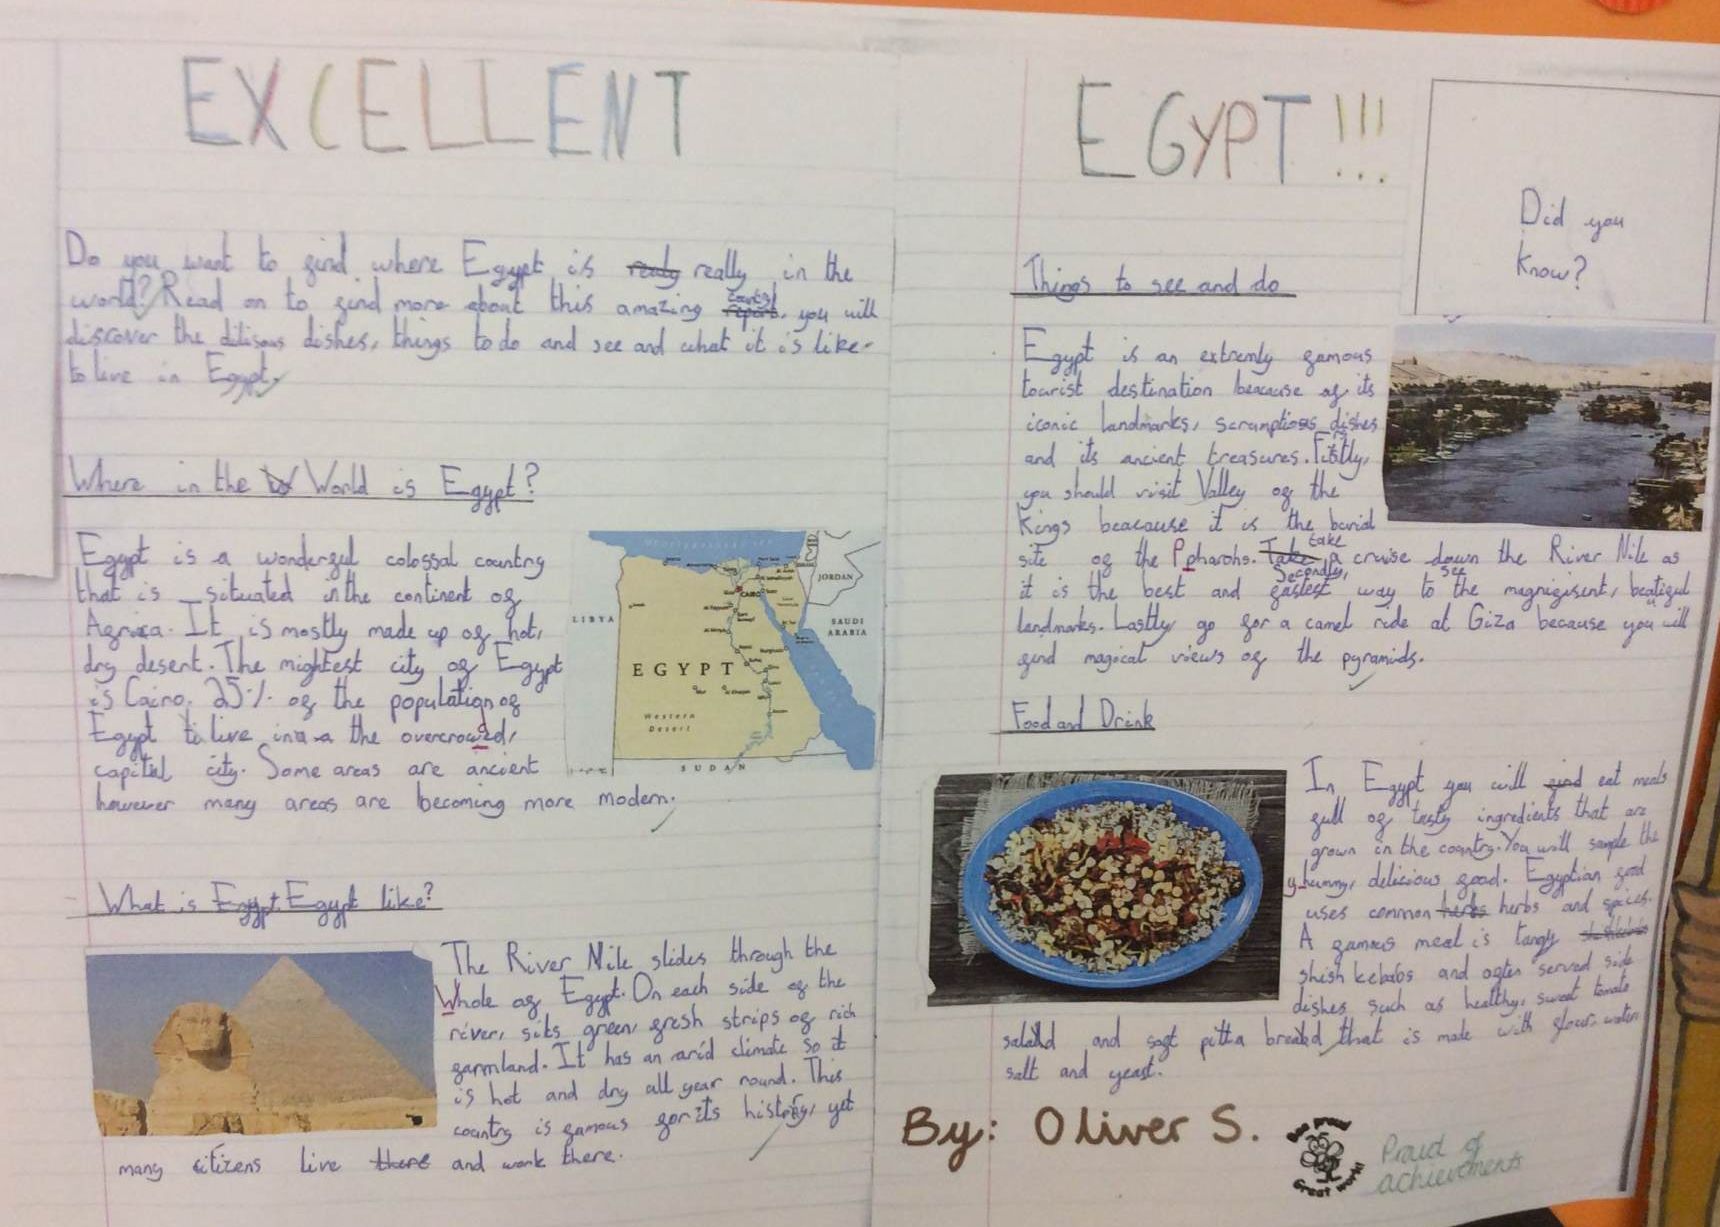 EXCELLENT
Do you want to find where Egypt is realy really in the
world? Read on to find more about this amazing report country. you will
discover the dilisous dishes, things to do and see and what it is like
to live in Egypt.
Where in the W World is Egypt?
Egypt is a wonderful colossal country
that is situated in the continent of
Africa. It is mostly made up of hot,
dry desert. The mightest city of Egypt
is Cairo. 25% of the population of
Egypt to live in the overcrowed,
capital city. Some areas are ancient
however many areas are becoming more modern.
LIBYA
JORDAN
SAUDI
ARABIA
CAIRO
EGYPT
Western
Desert
SUDAN
What is Egypt Egypt like?
The River Nile slides through the
Whole of Egypt. On each side of the
river, sits green, fresh strips of rich
farmland. It has an arid climate so it
is hot and dry all year round. This
country is famous for its history, yet
many citizens live there and work there.
EGYPT!!!
Did you
know?
Things to see and do
Egypt is an extremly famous
tourist destination beacause of its
iconic landmarks, scrumptios dishes
and its ancient treasures. Firstly,
you should visit Valley of the
Kings beacause it is the burial
site of the Ppharohs. Secondly, Take take a cruise down the River Nile as
it is the best and fastest way to see the magnifisent, beatiful
landmarks. Lastly, go for a camel ride at Giza because you will
find magical views of the pyramids.
Food and Drink
In Egypt you will find eat meals
full of tasty ingredients that are
grown in the country. You will sample the
yhummy, delicious food. Egyptian food
uses common herbs herbs and spices.
A famous meal is tangy
shish kebabs and often served side
dishes such as healthy, sweet tomato
salad and soft pitta bread that is made with flour, water
salt and yeast.
By: Oliver S.
Bee proud
Great work!
Proud of
achievements